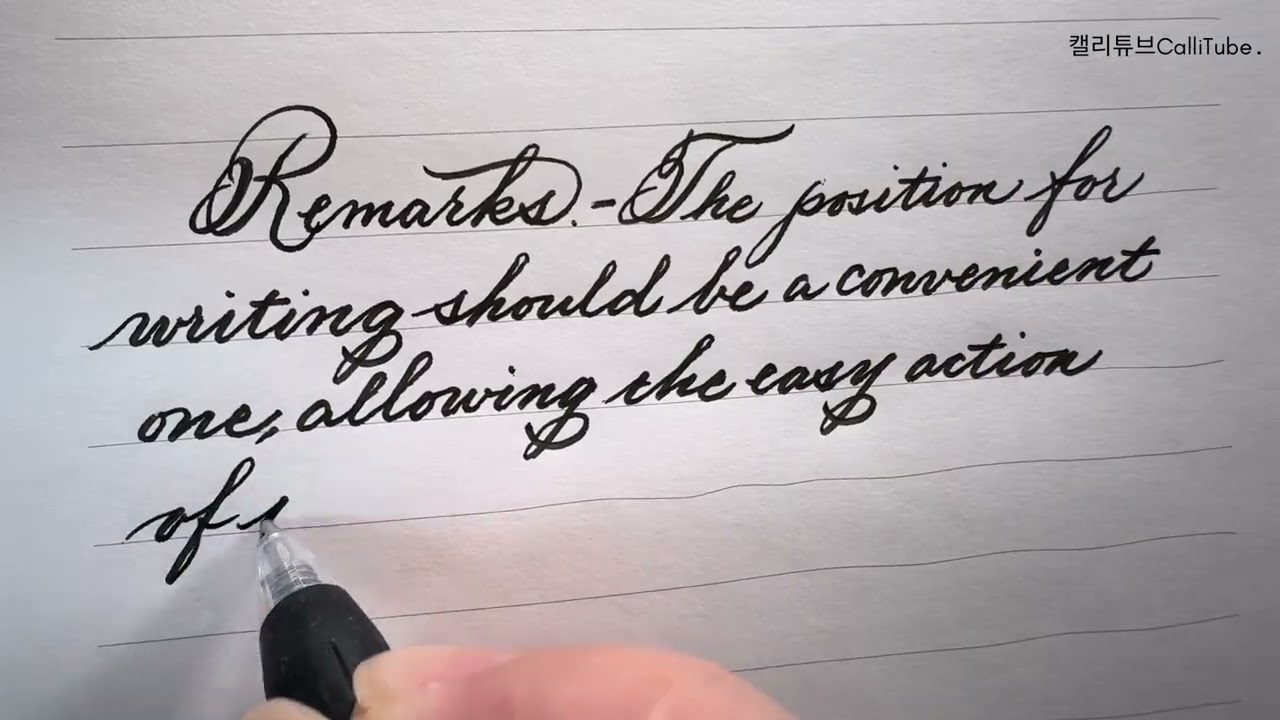 캘리튜브CalliTube.
Remarks.-The position for
writing should be a convenient
one, allowing the easy action
of